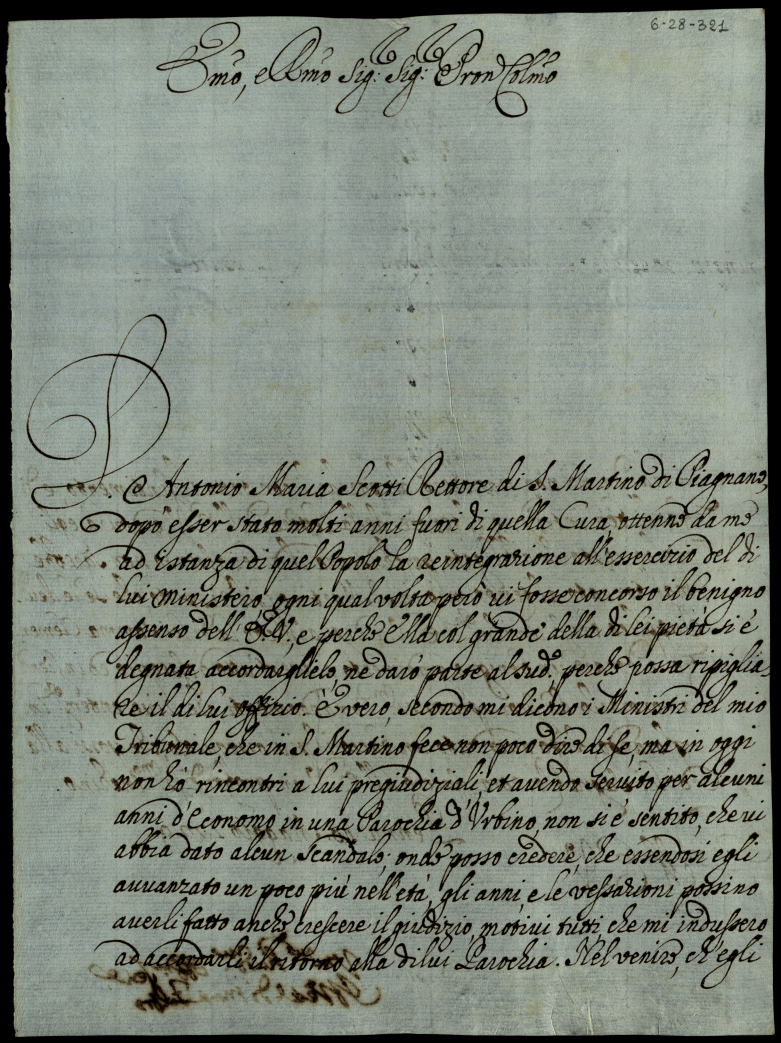 6-28-321
Emo, e Rmo Sig: Sig: Pron Colmo
D Antonio Maria Scotti Rettore di S. Martino di Piagnano,
dopò esser stato molti anni fuori di quella Cura ottenne da me
ad istanza di quel Popolo la reintegrazione all'essercizio del di
lui ministero, ogni qual volta però vi fosse concorso il benigno
assenso dell' E.V., e perche Ella col grande della di lei pietà si è
degnata accordarglielo, ne darò parte al sud.o perche possa ripiglia-
re il di lui offizio. È vero, secondo mi dicono i Ministri del mio
Tribunale, che in S. Martino fece non poco dire di se, ma in oggi
non hò rincontri a lui pregiudiziali, et avendo servito per alcuni
anni d'economo in una Parochia d'Urbino, non si è sentito, che vi
abbia dato alcun scandalo; onde posso credere, che essendosi egli
avvanzato un poco più nell'età, gli anni, e le vessazioni possino
averli fatto anche crescere il giudizio, motivi tutti che mi indussero
ad accordarli il ritorno alla di lui Parochia. Nel venire, ch'egli